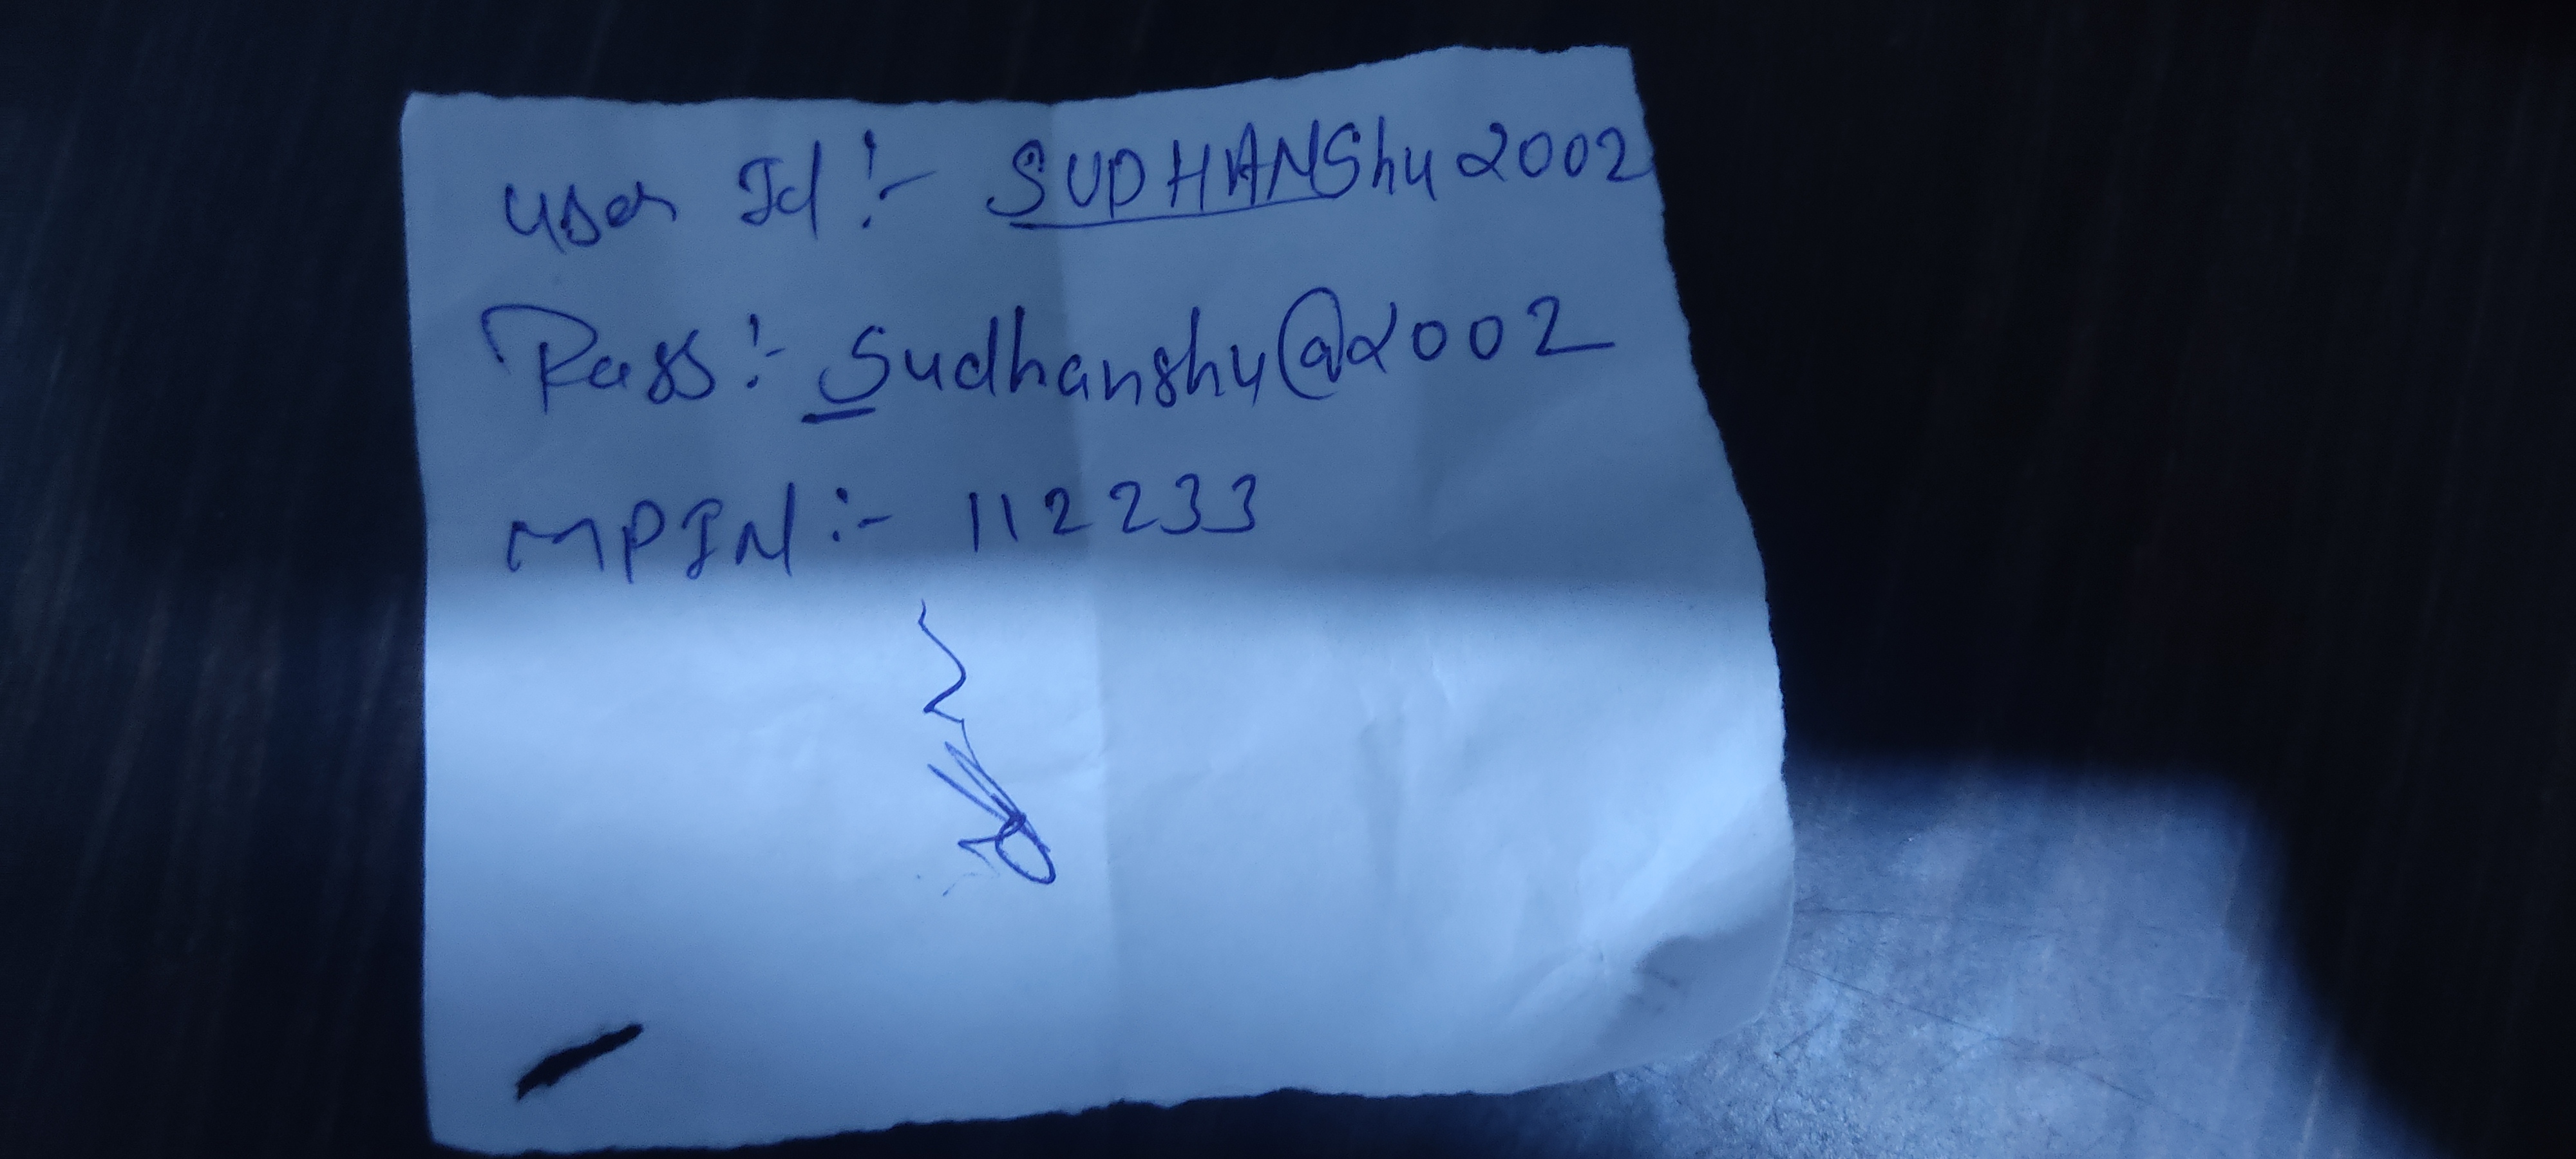 User Id :- SUDHANShu2002
Pass :- Sudhanshu@2002
MPIN :- 112233